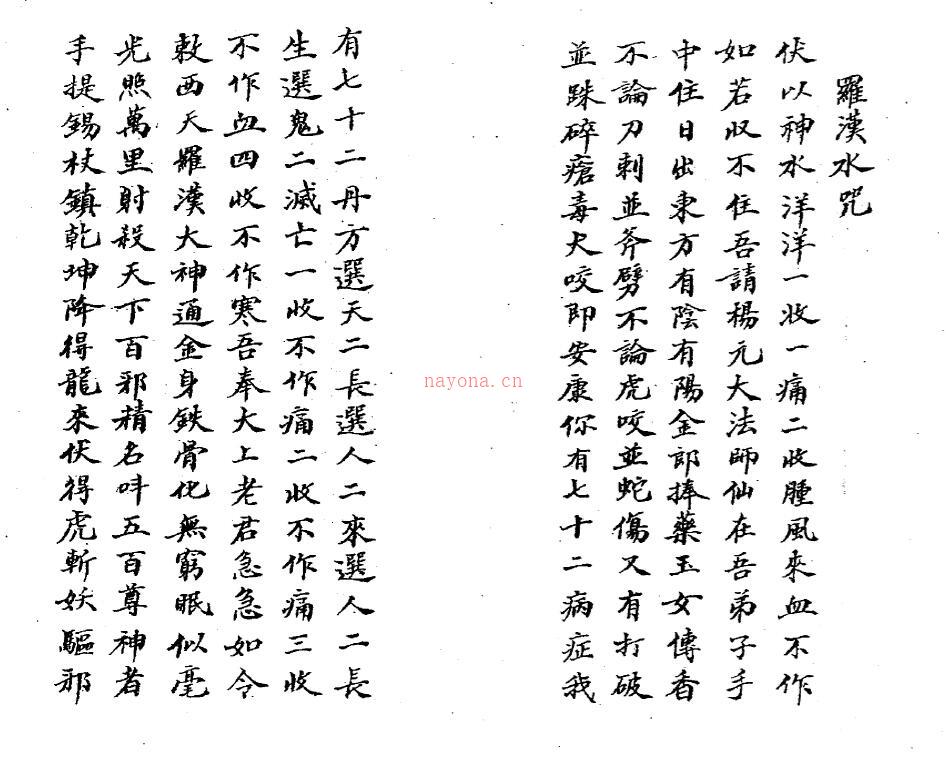 羅漢水咒
伏以神水洋洋一收一痛二收腫風來血不作
如若収不住吾請楊元大法師仙在吾弟子手
中住日出東方有陰有陽金郎捧藥玉女傳香
不論刀刺並斧劈不論虎咬並蛇傷又有打破
並跌碎瘡毒犬咬即安康你有七十二病症我
有七十二丹方選天二長選人二來選人二長
生選鬼二滅亡一收不作痛二收不作痛三收
不作血四收不作寒吾奉大上老君急急如令
敕西天羅漢大神通金身鉄骨化無窮眠似毫
光照萬里射殺天下百邪精名呌五百尊神者
手提錫杖鎮乾坤降得龍來伏得虎斬妖驅邪
nayona.cn